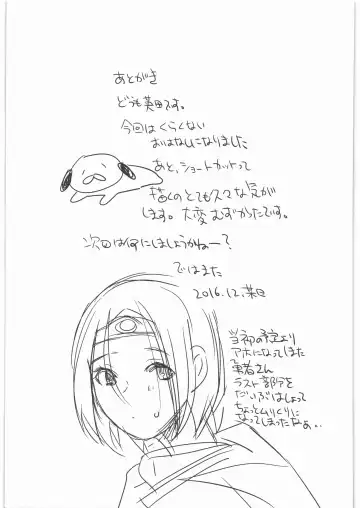 あとがき
どうも英田です。
今回はくらくない
おはなしになりました
あと、ショートカットって
描くのとても久々な気が
します。大変むずかったです。
次回は何にしましょうかねー?
ではまた
2016.12.英田
当初の予定より
アホになってしまった
勇者さん
ラスト部分を
だいぶはしょって
ちょっとムリくりに
なってしまったなぁ..